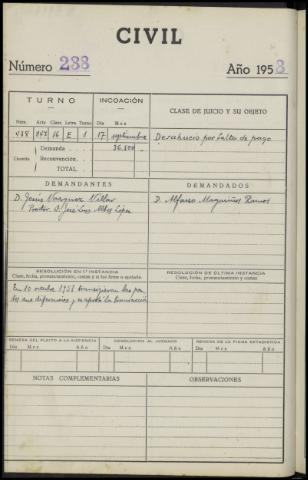 CIVIL
Número 238 Año 1958
TURNO INCOACIÓN CLASE DE JUICIO Y SU OBJETO
Núm. Arts. Clase Letra Turno Día Mes
438 16 E 1 17 septiembre Desahucio por falta de pago
Demanda 36.500
Cuantía Reconvención.
TOTAL
DEMANDANTES DEMANDADOS
D. Jesús Vazquez Villar D. Alfonso Maquiñas Ramos
Procdor. D. José Luis López
RESOLUCIÓN EN 1ª INSTANCIA RESOLUCIÓN DE ÚLTIMA INSTANCIA
Clase, fecha, pronunciamiento, costas y si fue firme o apelada. Clase, fecha, pronunciamiento y costas.
En 10 octubre 1958 transigieron las par-
tes sus diferencias y se aprobó la transacción
REMESA DEL PLEITO A LA AUDIENCIA DEVOLUCION AL JUZGADO REMESA DE LA FICHA ESTADISTICA
Día Mes Año Día Mes Año Día Mes Año
NOTAS COMPLEMENTARIAS OBSERVACIONES